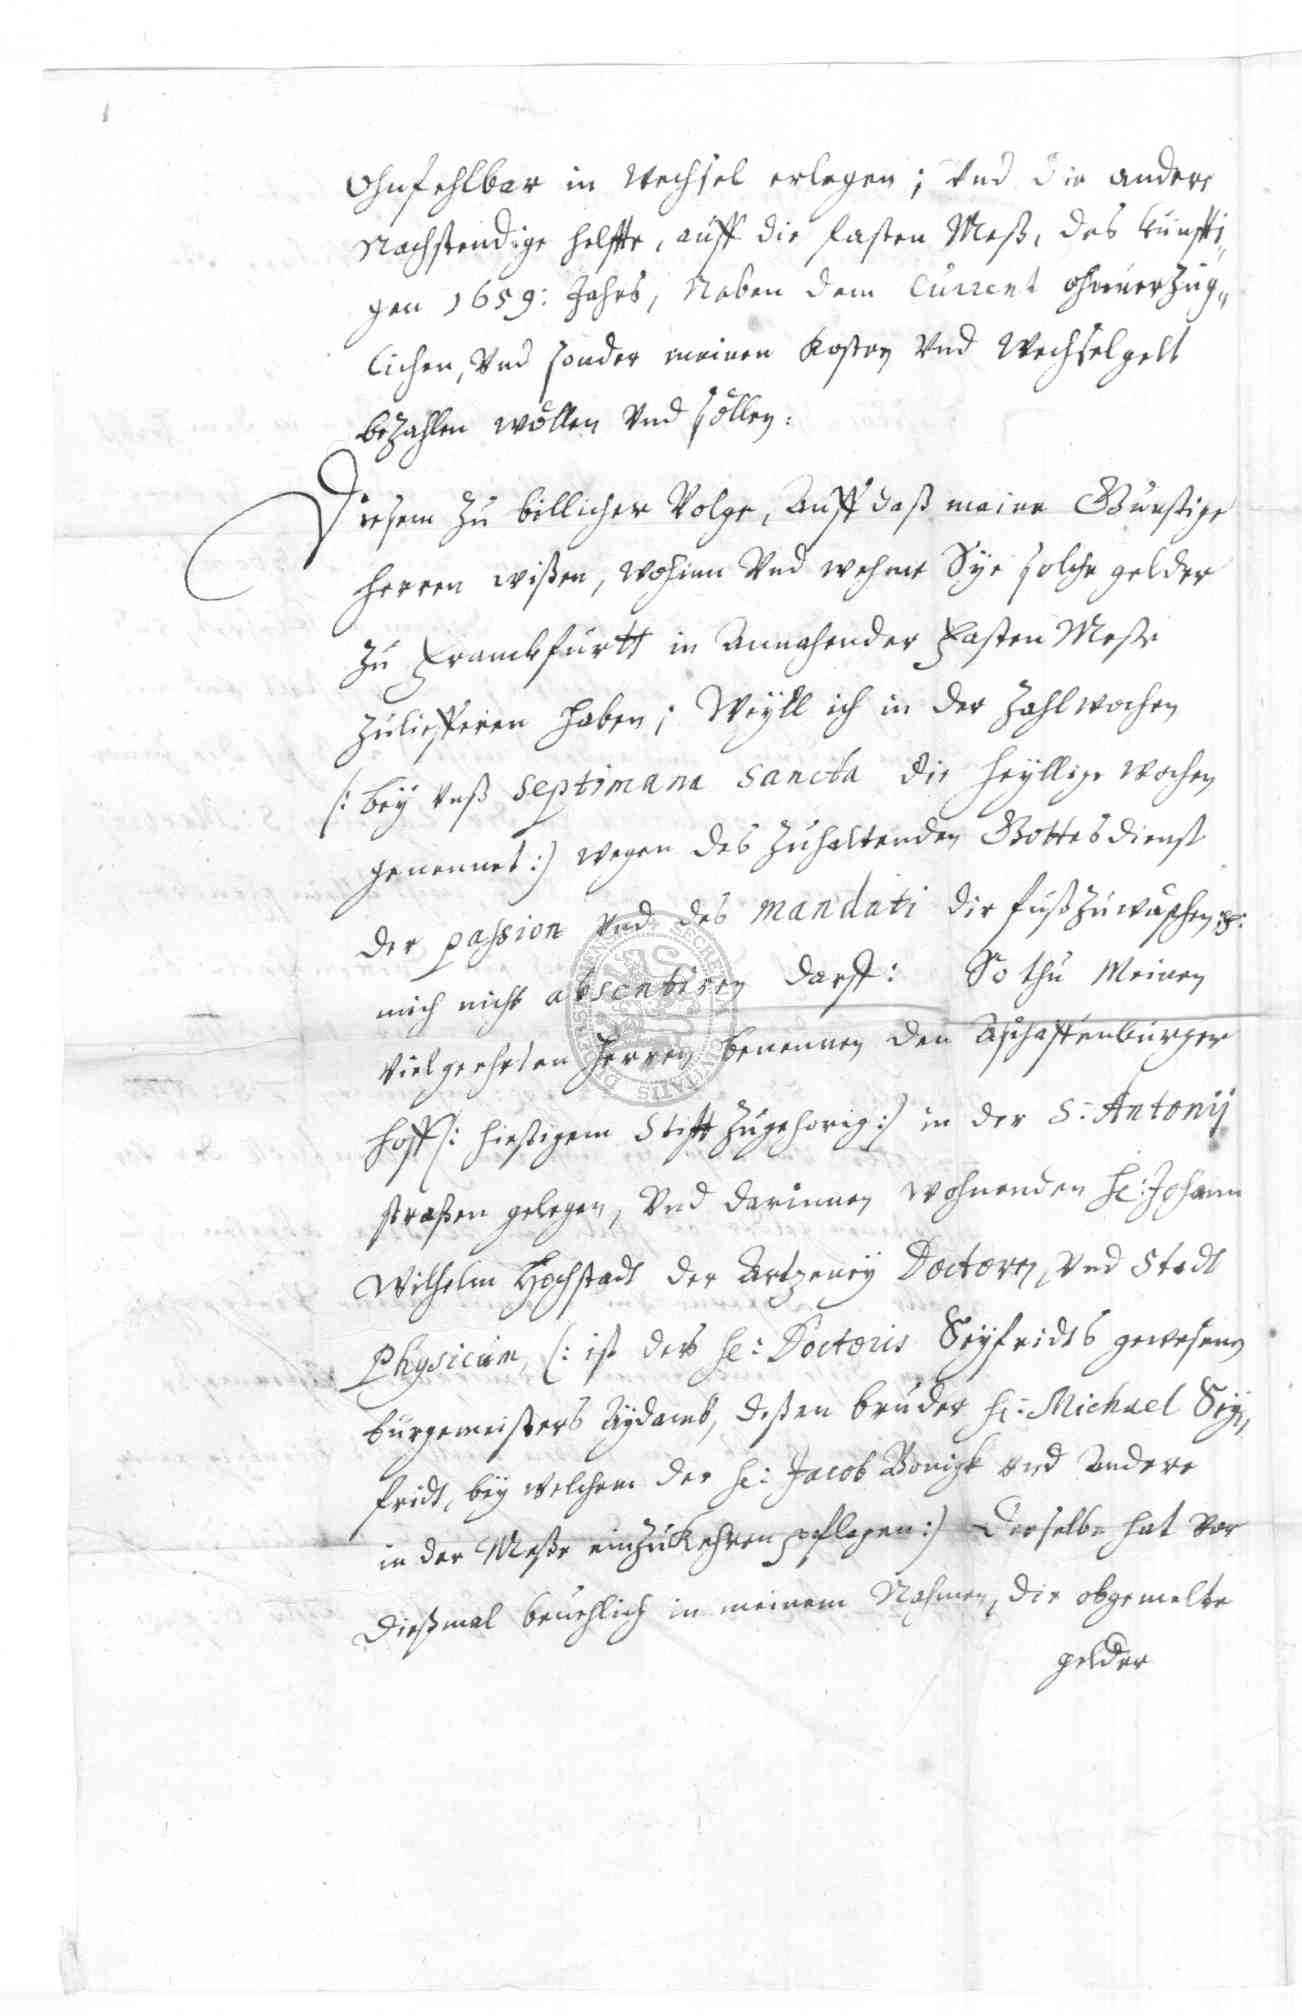 Ohnfehlbar in Wechsel erlegen; Vnd die andere
Nachstendige helffte, auff die fasten Meß, des künffti„
gen 1659: Jahrs, Neben dem Current ohnverzüg„
lichen, Vnd sonder meinen Kosten Vnd Wechselgelt
bezahlen wöllen Vnd söllen:
Diesem zu billicher Volge, Auff daß meine Günstige
herren wißen, wohinn Vnd wehme Sÿe solche gelder
zu Franckfurtt in Annahender Fasten Meße
zulieffern haben; Weÿll ich in der Zahlwochen
/: beÿ vnß septimana sancta die heÿllige wochen
genennet:/ wegen des Zuhaltenden Gottesdienst
der passion vnd des mandati die fußzuwaschen, ꝛc:
mich nicht absentiren darff: So thu Meinen
vielgeehrten Herren benennen den Aschaffenburger
hoff /: hiesigem Stifft zugehorig:/ in der S: Antonij
straßen gelegen, Vnd darinnen wohnenden H: Johann
Wilhelm Hochstadt der Artzeneÿ Doctorn, Vnd Stadt
Physicum, /: ist des H: Doctoris Seÿfridts gewesenen
burgemeisters Aÿdamb, deßen bruder H: Michael Seÿ„
fridt, beÿ welchem der H: Jacob Bonigk vnd Andere
in der Meße einzuKehren pflegen:/ Derselbe hat vor
dießmal beuehlich in meinem Nahmen, die obgemelte
gelder
SECRETUM CIVITATIS